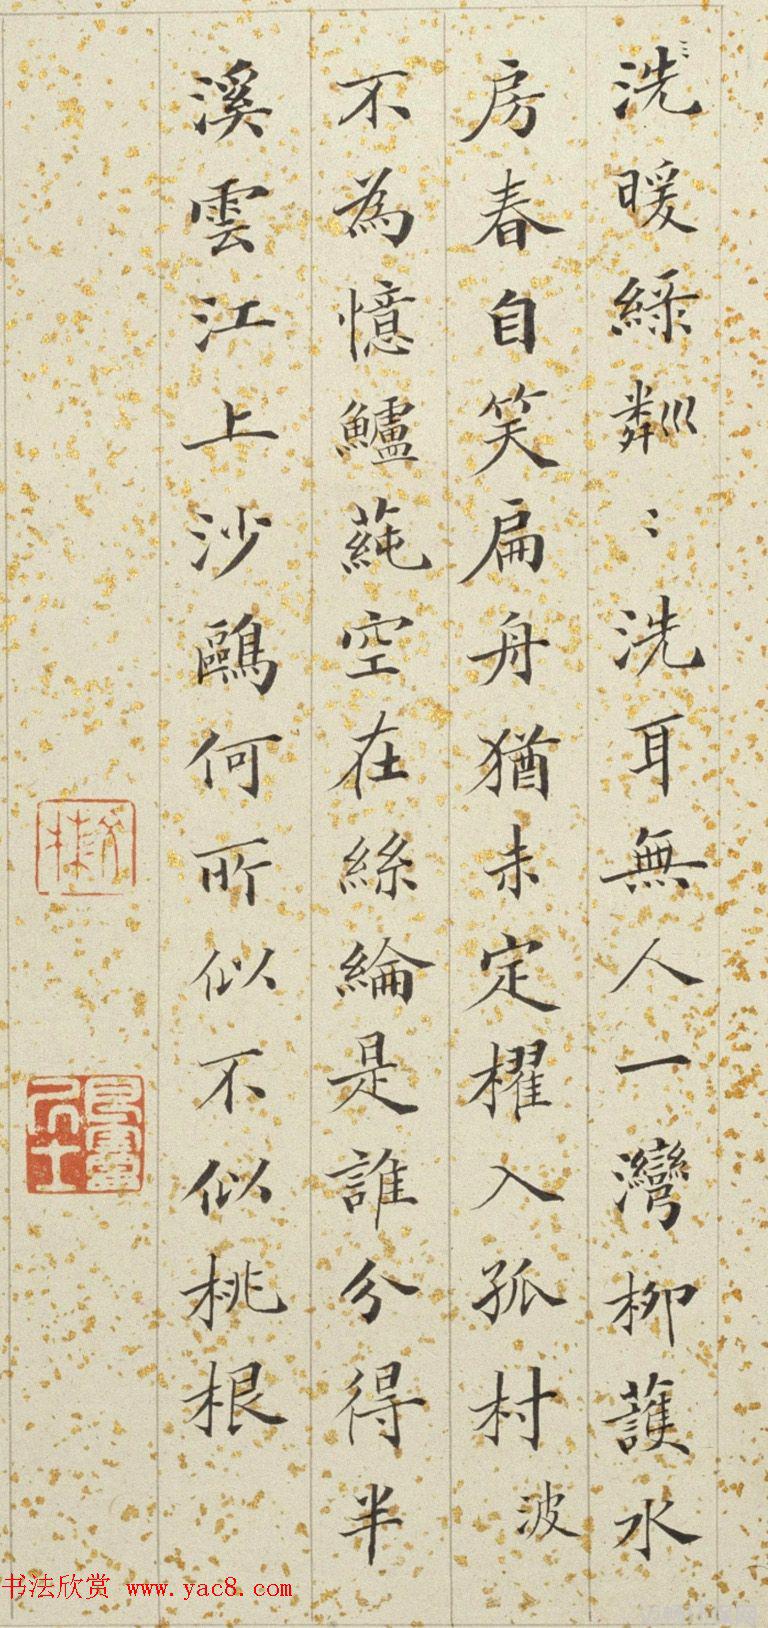 洗暖緑粼〻洗耳無人一灣柳蔭水
房春自笑扁舟猶未定櫂入孤村波
不為憶鱸蒓空在絲綸是誰分得半
溪雲江上沙鷗何所似不似桃根
书法欣赏 www.yac8.com